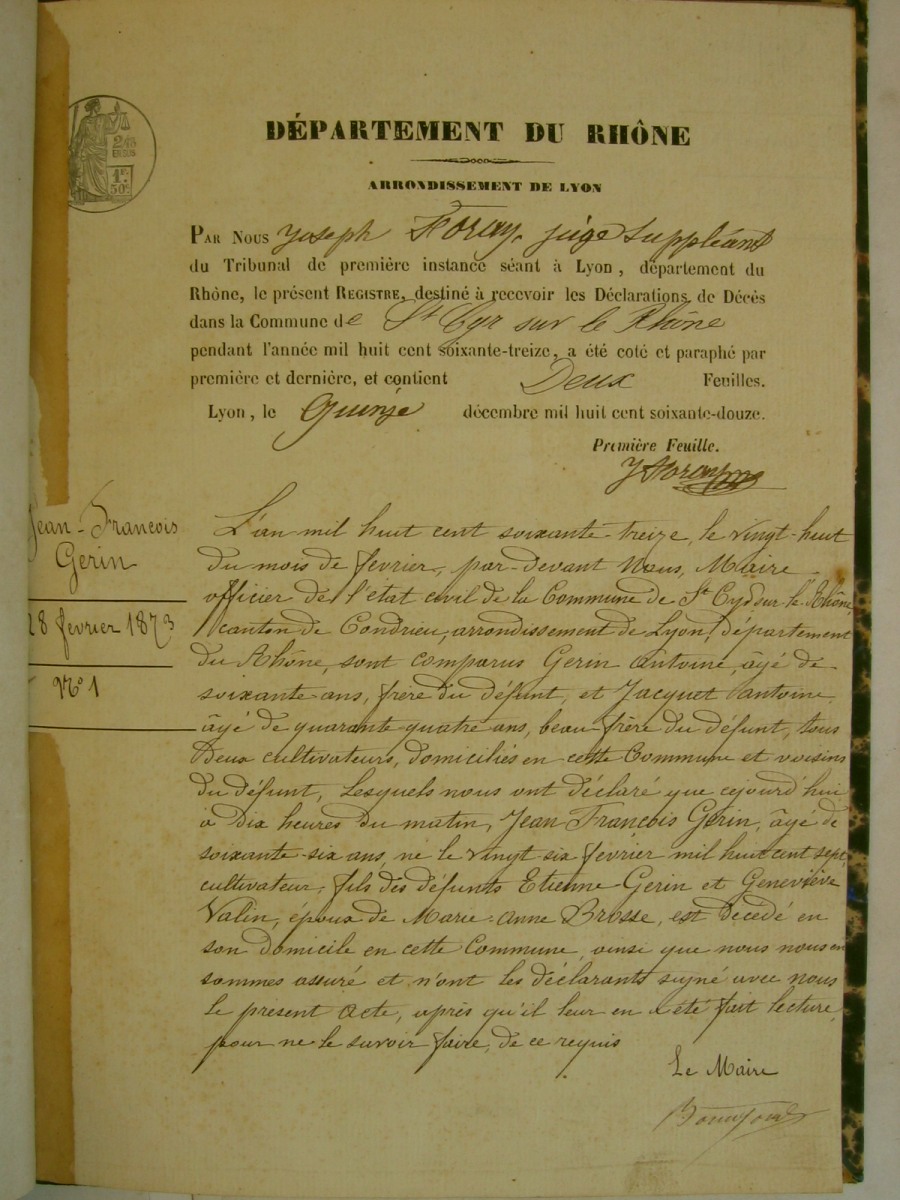 2/10
EN SUS
1F.
50C
DÉPARTEMENT DU RHÔNE
ARRONDISSEMENT DE LYON
PAR NOUS Joseph Foray, juge suppléant
du Tribunal de première instance séant à Lyon, département du
Rhône, le présent REGISTRE, destiné à recevoir les Déclarations de Décès
dans la Commune de St Cyr sur le Rhône
pendant l'année mil huit cent soixante-treize, a été coté et paraphé par
première et dernière, et contient Deux Feuilles.
Lyon, le Quinze décembre mil huit cent soixante-douze.
Première Feuille.
J Foray
Jean-François
Gerin
28 fevrier 1873
No 1
L'an mil huit cent soixante-treize, le vingt-huit
du mois de fevrier, par-devant Nous, Maire
officier de l'état civil de la Commune de St Cyr sur le Rhône
canton de Condrieu, arrondissement de Lyon, département
du Rhône, sont comparus Gerin Antoine, âgé de
soixante ans, frère du défunt, et Jacquet Antoine
âgé de quarante-quatre ans, beau frère du défunt, tous
Deux cultivateurs, domiciliés en cette Commune et voisins
du défunt, Lesquels nous ont déclaré que cejourd'hui
à Dix heures du matin, Jean François Gerin, âgé de
soixante-six ans, né le vingt six fevrier mil huit cent sept
cultivateur, fils des défunts Etienne Gerin et Geneviève
Valin, époux de Marie-Anne Brosse, est décedé en
son domicile en cette Commune, ainsi que nous nous en
sommes assuré et n'ont les déclarants signé avec nous
le présent acte, après qu'il leur en a été fait lecture,
pour ne le savoir faire, de ce requis
Le Maire